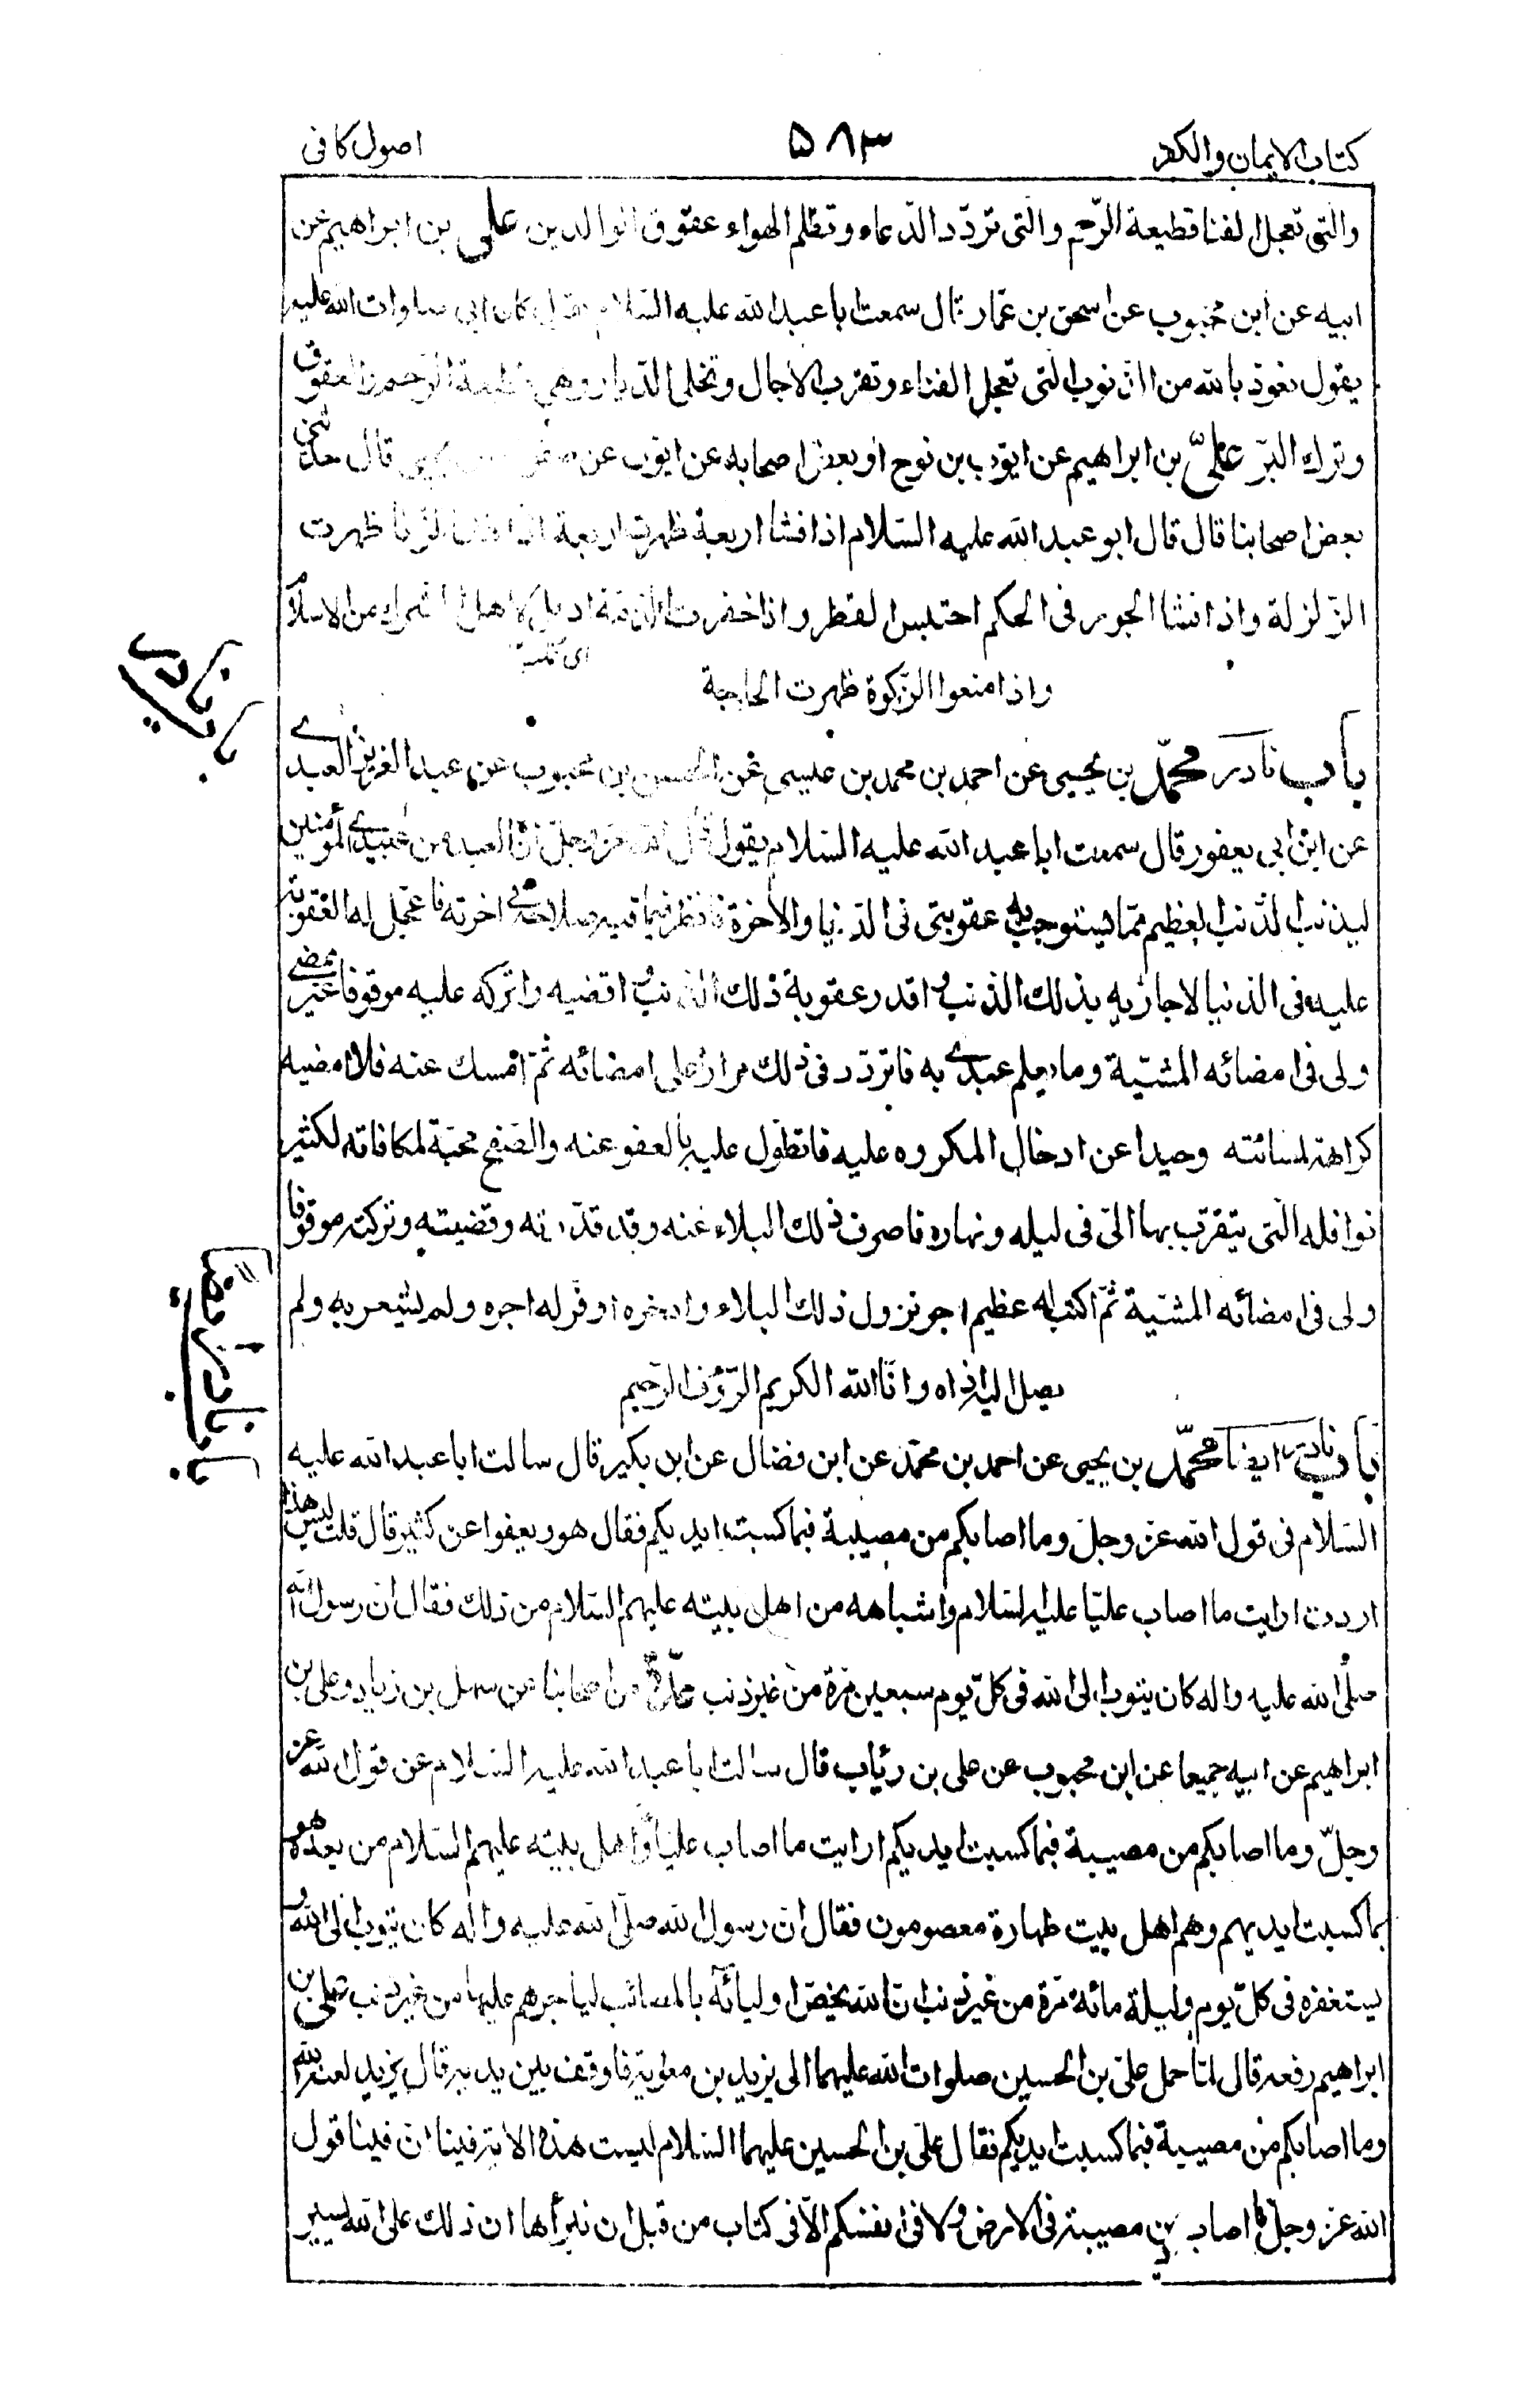 كتاب الايمان والكفر
۵۸۳
اصول كافى
والتى تعجل الفنا قطيعة الرّحم والتى تردّد الدّعاء وتظلم الهواء عقوق الوالدين على بن ابراهيم عن
ابيه عن ابن محبوب عن اسحق بن عمّار قال سمعت ابا عبد الله عليه السّلام يقول كان ابى صلوات الله عليه
يقول نعوذ بالله من الذّنوب التى تعجل الفناء وتقرب الآجال وتخلى الدّيار وهى قطيعة الرّحم والعقوق
وترك البرّ علىّ بن ابراهيم عن ايّوب بن نوح او بعض اصحابه عن ايوب عن صفوان بن يحيى قال حدّثنى
بعض اصحابنا قال قال ابو عبد الله عليه السّلام اذا فشا اربعة ظهرت اربعة اذا فشا الزّنا ظهرت
الزّلزلة واذا فشا الجور فى الحكم احتبس القطر واذا خفرت الذّمّة اديل لاهل الشرك من الاسلام
واذا منعوا الزّكوة ظهرت الحاجة
باب نادر
باب نادر محمّد بن يحيى عن احمد بن محمد بن عيسى عن الحسن بن محبوب عن عبد العزيز العبدى
عن ابن ابى يعفور قال سمعت ابا عبد الله عليه السّلام يقول قال الله عزّ وجلّ انّ العبد من عبيدى المؤمنين
ليذنب الذّنب العظيم ممّا يستوجب به عقوبتى فى الدّنيا والآخرة فانظر فيما فيه صلاحه فى اخرته فاعجّل له العقوبة
عليه فى الدّنيا لاجازيه بذلك الذنب و اقدر عقوبة ذلك الذّنب و اقضيه واتركه عليه موقوفا غير ممضى
ولى فى امضائه المشيّة وما يعلم عبدى به فاتردّد فى ذلك مرارا على امضائه ثمّ امسك عنه فلا امضيه
كراهة لمسائته وحيدا عن ادخال المكروه عليه فاتطوّل عليه بالعفو عنه والصّفح محبّة لمكافاته لكثير
نوافله التى يتقرّب بها الىّ فى ليله ونهاره فاصرف ذلك البلاء عنه وقد قدّرته وقضيته وتركته موقوفا
باب نادر ايضا
ولى فى امضائه المشيّة ثمّ اكتب له عظيم اجر نزول ذلك البلاء وادخره واوفر له اجره ولم يشعر به ولم
يصل اليه اذاه وانا الله الكريم الرّؤف الرّحيم
باب نادر ايضا محمّد بن يحيى عن احمد بن محمّد عن ابن فضال عن ابن بكير قال سالت ابا عبد الله عليه
السّلام فى قول الله عزّ وجلّ وما اصابكم من مصيبة فبما كسبت ايديكم فقال هو ويعفوا عن كثير قال قلت ليس هذا
اردت ارايت ما اصاب عليّا عليه السّلام واشباهه من اهل بيته عليهم السّلام من ذلك فقال انّ رسول الله
صلّى الله عليه واله كان يتوب الى الله فى كلّ يوم سبعين مرّة من غير ذنب عدّة من اصحابنا عن سهل بن زياد وعلى بن
ابراهيم عن ابيه جميعا عن ابن محبوب عن على بن رئاب قال سالت ابا عبد الله عليه السّلام عن قول الله عز
وجلّ وما اصابكم من مصيبة فبما كسبت ايديكم ارايت ما اصاب عليّا و اهل بيته عليهم السّلام من بعده هو
بما كسبت ايديهم وهم اهل بيت طهارة معصومون فقال انّ رسول الله صلّى الله عليه واله كان يتوب الى الله و
يستغفره فى كلّ يوم وليلة مائة مرّة من غير ذنب انّ الله يخصّ اوليائه بالمصائب لياجرهم عليها من غير ذنب على بن
ابراهيم رفعه قال لمّا حمل علىّ بن الحسين صلوات الله عليهما الى يزيد بن معوية فاوقف بين يديه قال يزيد لعنه الله
وما اصابكم من مصيبة فبما كسبت ايديكم فقال علىّ بن الحسين عليهما السّلام ليست هذه الاية فينا انّ فينا قول
الله عزّ وجلّ ما اصاب من مصيبة فى الارض ولا فى انفسكم الّا فى كتاب من قبل ان نبرأها ان ذلك على الله يسير